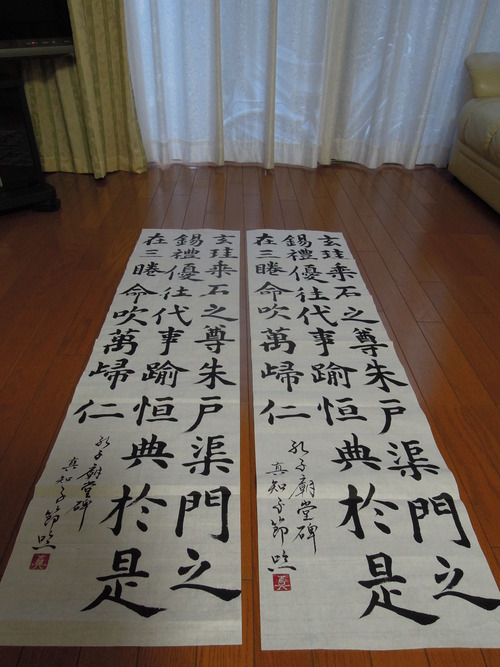 玄珪乗石之尊朱戸渠門之
錫禮優往代事踰恒典於是
在三睠命吹萬歸仁
孔子廟堂碑
真知子節臨
真
玄珪乗石之尊朱戸渠門之
錫禮優往代事踰恒典於是
在三睠命吹萬歸仁
孔子廟堂碑
真知子節臨
真